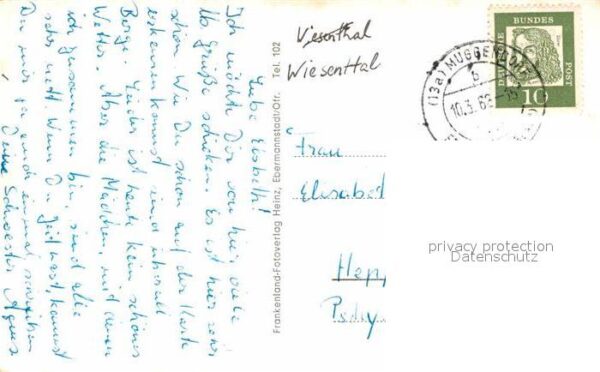 Liebe Elsbeth!
Ich möchte Dir von hier viele
lb. Grüße schicken. Es ist hier sehr
schön. Wie Du schon auf der Karte
erkennen kannst, sind überall
Berge. Leider ist heute kein schönes
Wetter. Aber die Mädchen, mit denen
ich zusammen bin, sind alle
sehr nett. Wenn Du Zeit hast, kannst
Du mir ja auch einmal schreiben
Deine Schwester Agnes
Frankenland-Fotoverlag Heinz, Ebermannstadt/Ofr. Tel. 102
Viesenthal
Wiesenttal
DEUTSCHE
BUNDES
POST
10
(13a) MUGGENDORF
b
10.3.63
Frau
Elisabet
Hep
privacy protection
Datenschutz